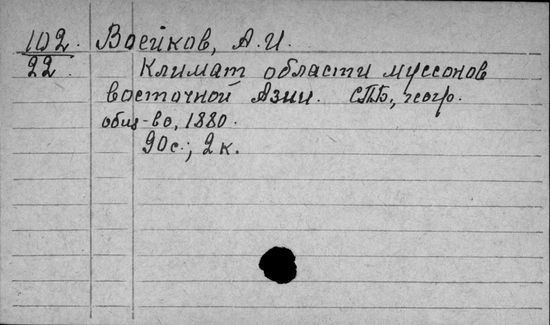 102. Воейков, А.И.
22. Климат области муссонов
восточной Азии. СПБ, геогр.
общ-во, 1880.
90с.; 2к.